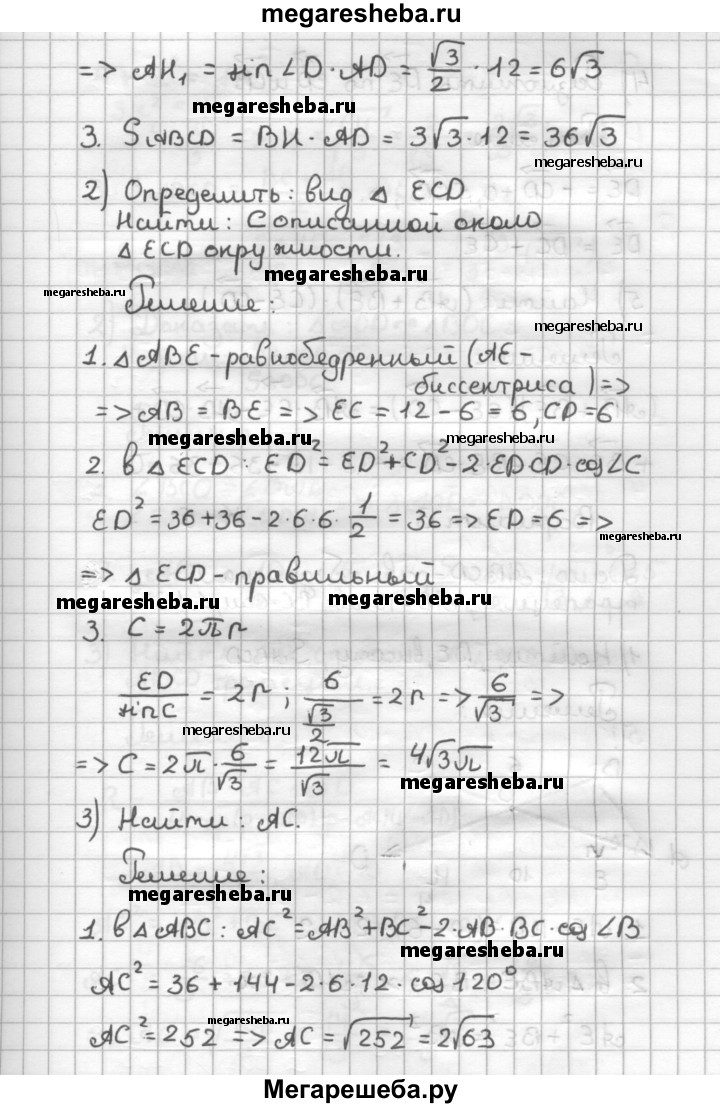 megaresheba.ru
=> AH₁ = sin ∠D · AD = √3/2 · 12 = 6√3
megaresheba.ru
3. SABCD = BH · AD = 3√3 · 12 = 36√3
megaresheba.ru
2) Определить: вид Δ ECD
Найти: C описанной около
Δ ECD окружности.
megaresheba.ru
megaresheba.ru
Решение:
megaresheba.ru
1. Δ ABE - равнобедренный (AE -
биссектриса) =>
=> AB = BE => EC = 12 - 6 = 6, CD = 6
megaresheba.ru
megaresheba.ru
2. В Δ ECD: ED² = ED² + CD² - 2 · ED · CD · cos ∠C
ED² = 36 + 36 - 2 · 6 · 6 · 1/2 = 36 => ED = 6 =>
megaresheba.ru
=> Δ ECD - правильный
megaresheba.ru
megaresheba.ru
3. C = 2πr
ED/sin C = 2r ; 6/(√3/2) = 2r => 6/√3 =>
megaresheba.ru
=> C = 2π · 6/√3 = 12π/√3 = 4√3π
megaresheba.ru
3) Найти: AC.
Решение:
megaresheba.ru
1. В Δ ABC: AC² = AB² + BC² - 2 · AB · BC · cos ∠B
megaresheba.ru
AC² = 36 + 144 - 2 · 6 · 12 · cos 120°
megaresheba.ru
AC² = 252 => AC = √252 = 2√63
Мегарешеба.ру